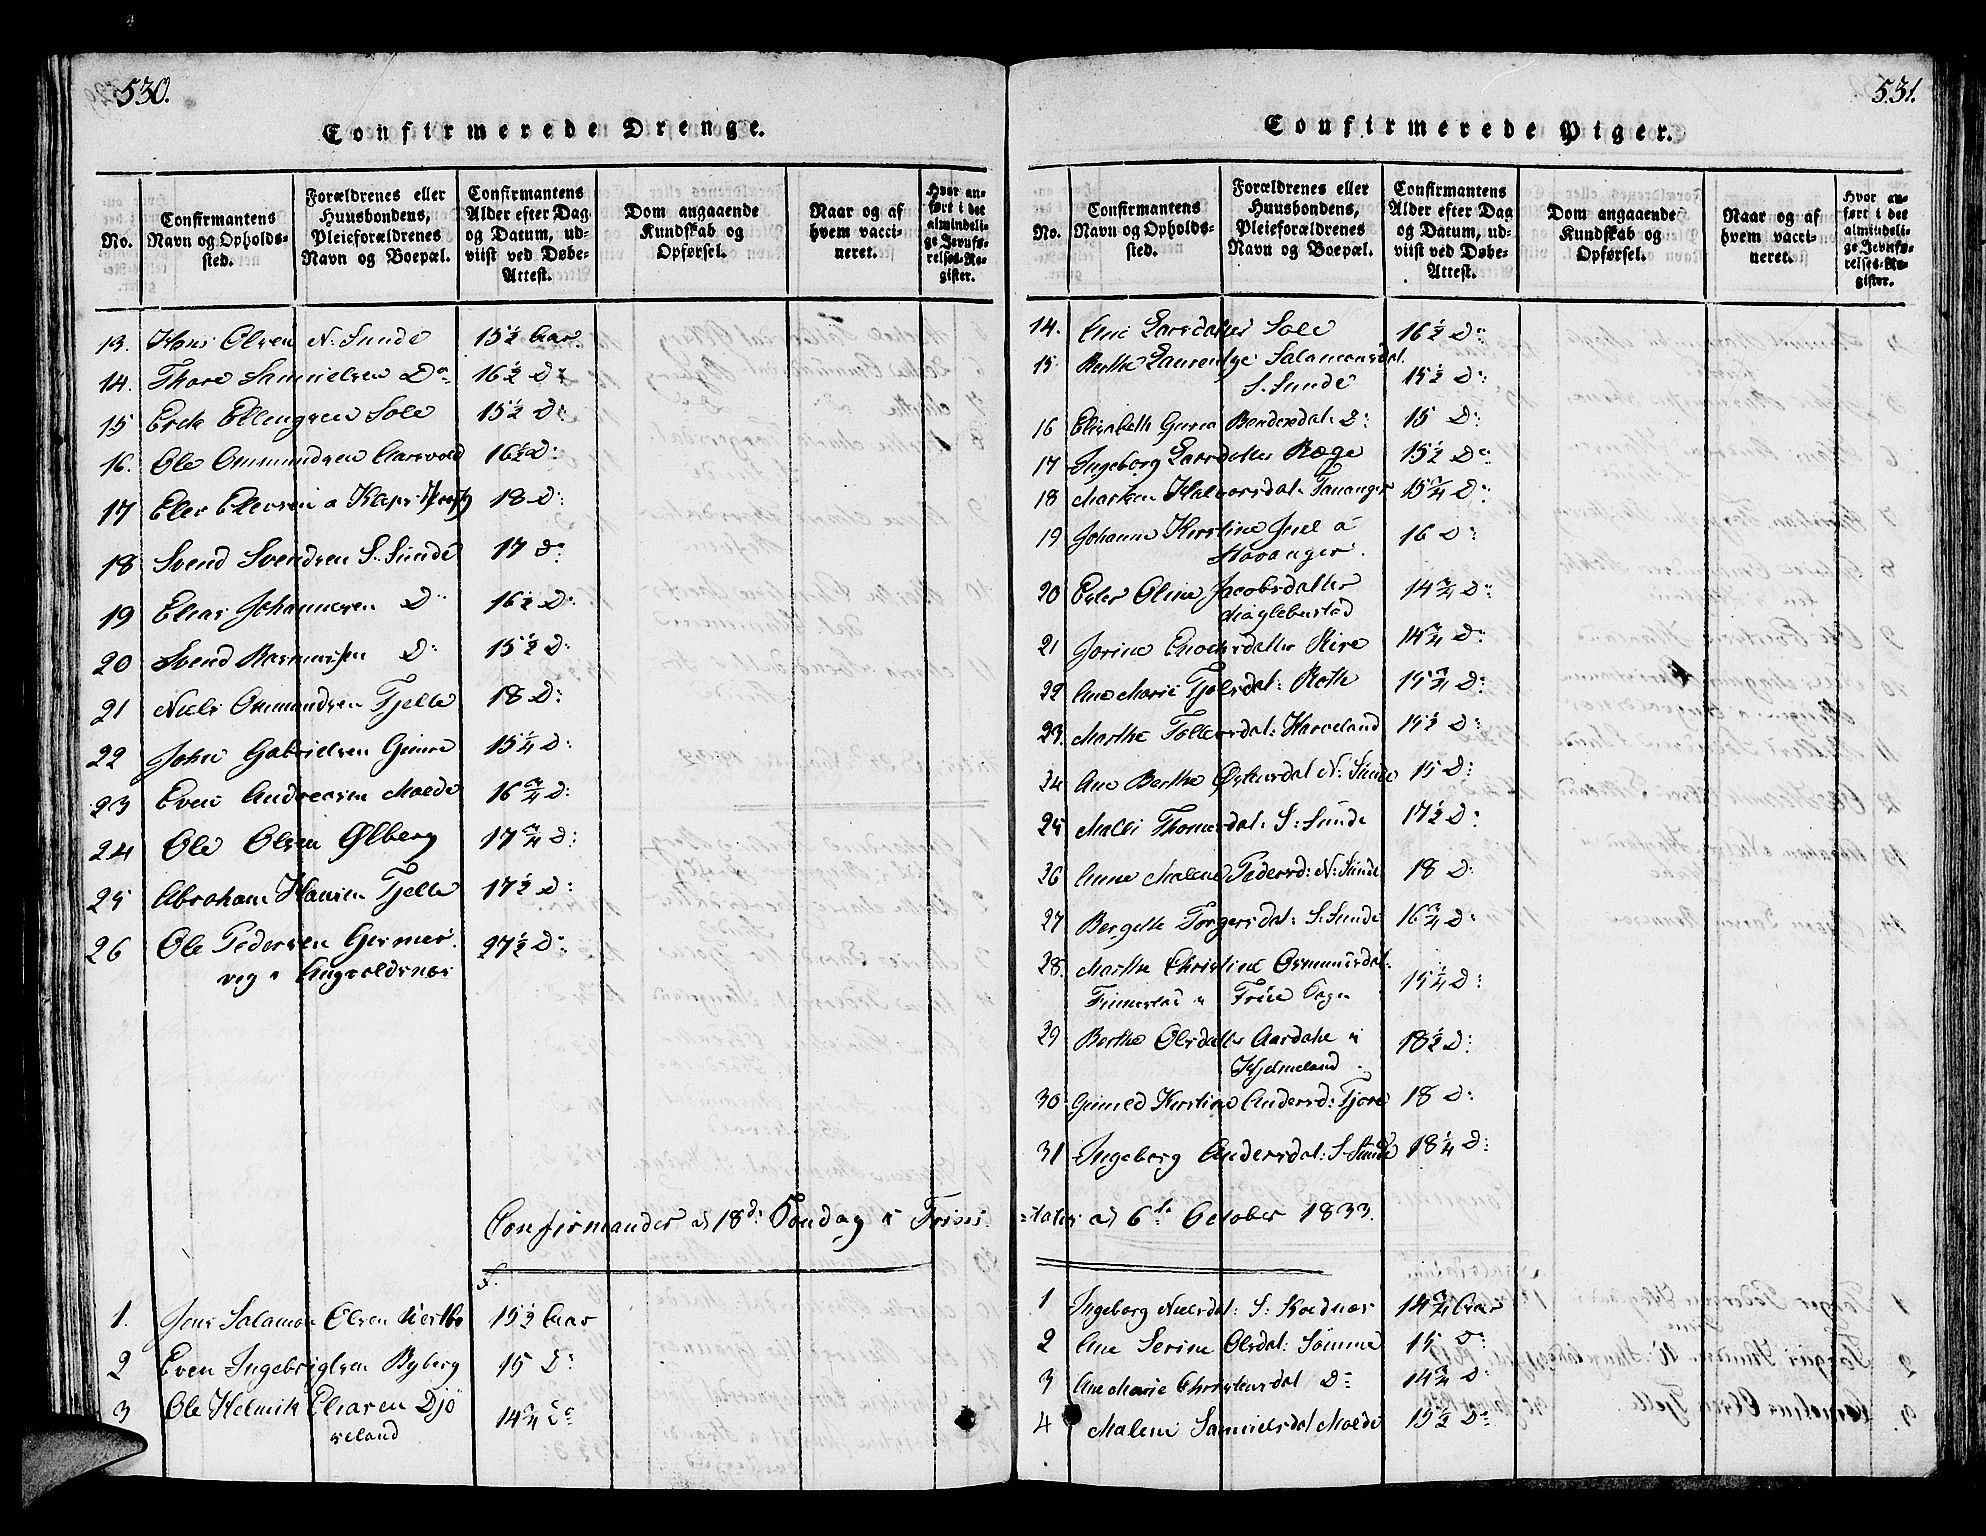 530.
Confirmerede Drenge.
No.
Confirmantens Navn og Opholds-sted.
Forældrenes eller Huusbondens, Pleieforældrenes Navn og Boepæl.
Confirmantens Alder efter Dag og Datum, ud-viist ved Døbe-Attest.
Dom angaaende Kundskab og Opførsel.
Naar og af hvem vacci-neret.
Hvor an-ført i det almindeli-ge Jevnfø-relses-Re-gister.
13. Hans Olsen N. Sunde 15½ Aar.
14. Thore Samuelsen Do 16½ D:
15 Erik Ellengsen Sole 15½ D:
16. Ole Ommundsen Aarsvold 16½ D:
17 Eler Elersen a 18 D:
18 Svend Svendsen S. Sunde 17 Do
19 Elias Johannesen D: 16½ D:
20 Svend Rasmussen D: 15½ D:
21 Niels Ommundsen Tjelte 18 D:
22 John Gabrielsen Gimre 15¼ D:
23 Even Andreasen Molde 16¾ D:
24 Ole Olsen Ølberg 17¾ D:
25 Abraham Hansen Tjelte 17½ D:
26 Ole Pedersen 27½ D:
Confirmander d 18d: Søndag e Trini:
1. Jens Salamon Olsen 15½ Aar
2 Even Ingebrigtsen Byberg 15 D:
3 Ole Helmik Eliasen Djø 14¾ Do
seland
531.
Confirmerede Piger.
No.
Confirmantens Navn og Opholds-sted.
Forældrenes eller Huusbondens, Pleieforældrenes Navn og Boepæl.
Confirmantens Alder efter Dag og Datum, ud-viist ved Døbe-Attest.
Dom angaaende Kundskab og Opførsel.
Naar og af hvem vacci-neret.
Hvor an-ført i det almindeli-ge Jevnfø-relses-Re-gister.
14. Ane Larsdatter Sole 16½ D:
15. Berthe Laurentze Salamonsdal.
S. Sunde 15½ D:
16 Elisabeth Guria Bendixdal: D: 15 D:
17 Ingeborg Larsdatter Ræge 15½ Do
18 Marken Halvorsdal: Tananger 15¾ D:
19 Johanne Kirstine Juel a 16 D:
Stavanger.
20 Ester Oline Jacobsdatter 14¾ D:
Meglebustad
21 Jorine Enochsdatter Rire 14¾ D:
22 Ane Marie Tjølsdal: Roth 15¾ D:
23. Marthe Tollersdal: Harveland 15½ D:
24 Ane Berthe Østensdal N: Sunde 15 D:
25 Malli Thomasdal: S: Sunde 17½ D:
26 Anne Malene Pedersd: N: Sunde 18 D:
27 Bergitte Torgersdal: S. Sunde 16¾ D:
28. Marthe Christine Osmundsdal. 15¼ D:
29 Berthe Olsdatter Aardahl i 18½ D:
Hjelmeland
30 Gunild Kirstine Andersd: Tjora 18 D:
31 Ingeborg Andersdal: S. Sunde 18¼ D:
=tatis d 6te October 1833.
1 Ingeborg Nielsdal: S: Kolnes 14¾ Aar
2 Ane Serine Olsdal: Sømme 15 Do
3 Ane Marie Christensdal D: 14¾ D:
4 Malene Samuelsdal Molde 15½ Do